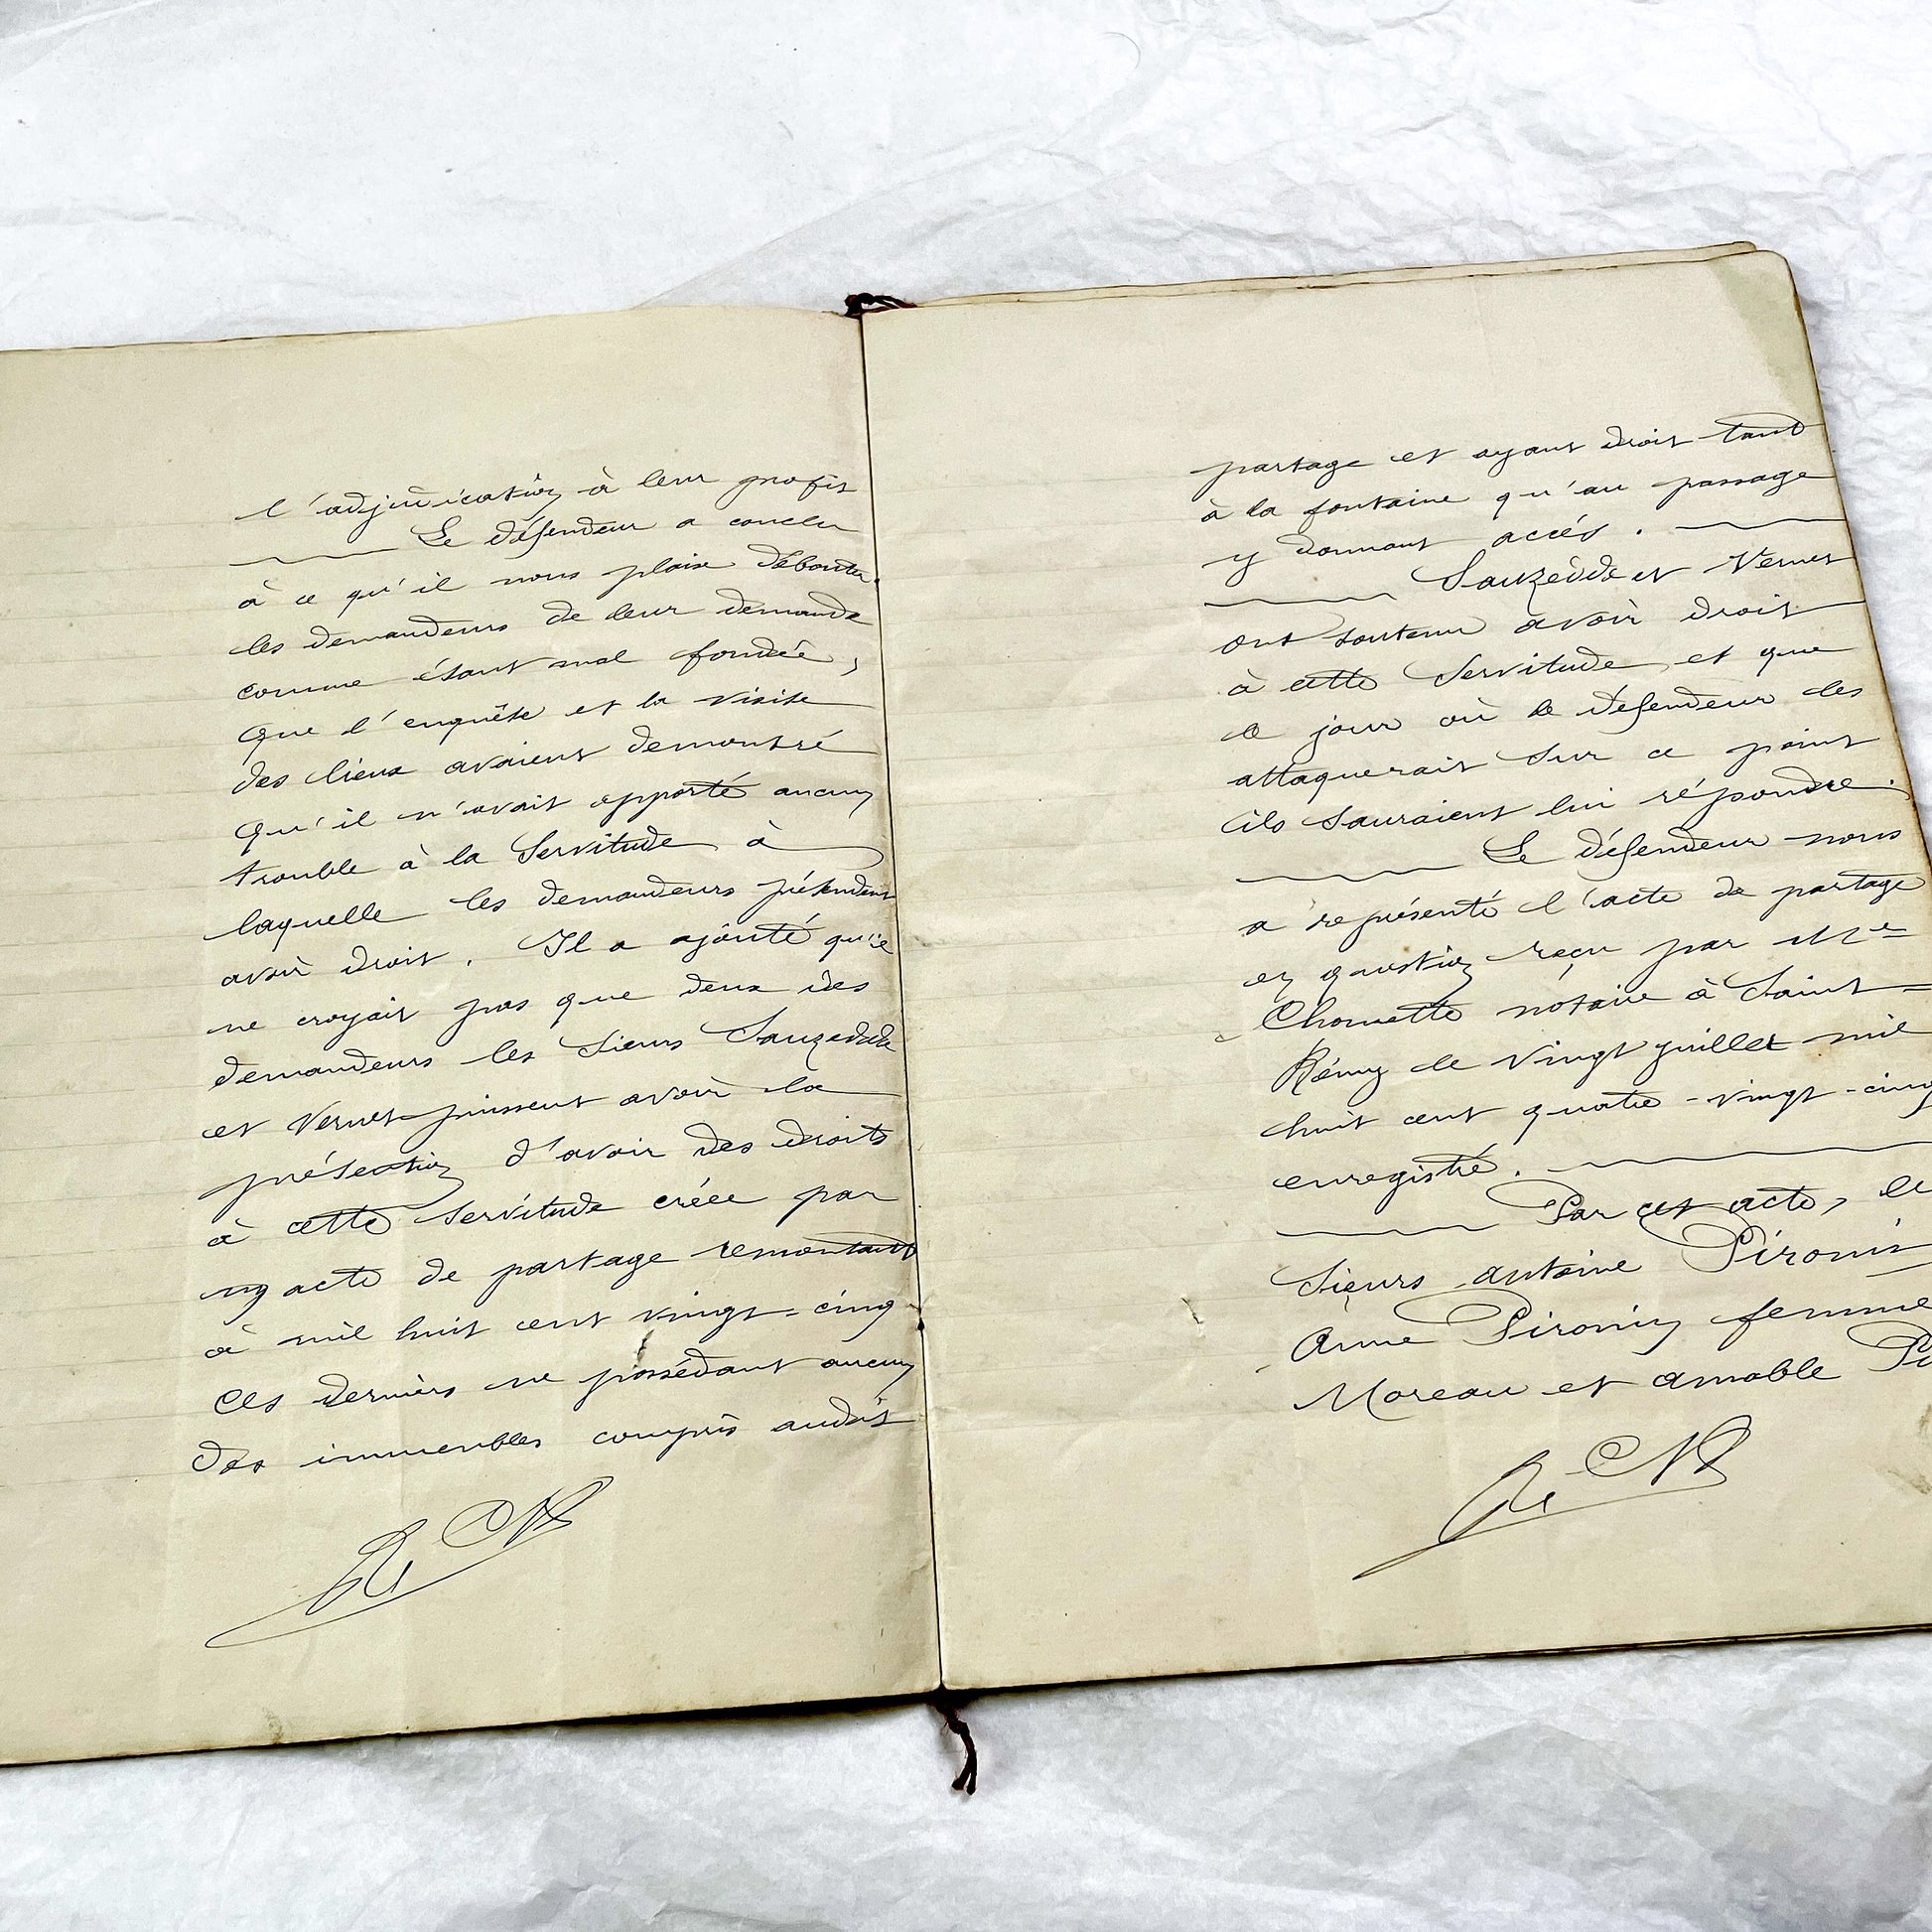 l'adjudication à leur profit
Le défendeur a conclu
à ce qu'il nous plaise débouter
les demandeurs de leur demande
comme étant mal fondée,
que l'enquête et la visite
des lieux avaient demontré
qu'il n'avait apporté aucun
trouble à la Servitude à
laquelle les demandeurs prétendent
avoir droit. Il a ajouté qu'il
ne croyait pas que deux des
demandeurs les Sieurs Sauzedde
et Vernet puissent avoir la
prétention d'avoir des droits
à cette Servitude créée par
un acte de partage remontant
à mil huit cent vingt-cinq
Ces derniers ne possédant aucun
des immeubles compris audit
partage et ayant droit tant
à la fontaine qu'au passage
y donnant accès.
Sauzedde et Vernet
ont soutenu avoir droit
à cette Servitude et que
le jour où le défendeur les
attaquerait sur ce point
ils sauraient lui répondre.
Le défendeur nous
a représenté l'acte de partage
en question reçu par Me
Chomette notaire à Saint=
Rémy le vingt juillet mil
huit cent quatre-vingt-cinq
enregistré.
Par cet acte, le
Sieurs antoine Pironin
Anne Pironin femme
Moreau et amable